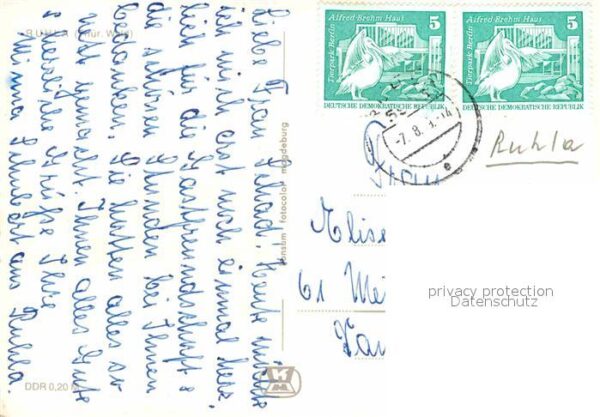 RUHLA (Thür. Wald)
Liebe Frau Schad! Heute möchte
ich mich erst noch einmal herz-
lich für die Gastfreundschaft &
die schönen Stunden bei Ihnen
bedanken. Sie hatten alles so
gut gemacht. Ihnen alles Gute
& herzliche Grüße Ihre
aus Ruhla.
DDR 0,20 M
fotocolor magdeburg
Alfred Brehm Haus
5
Tierpark Berlin
DEUTSCHE DEMOKRATISCHE REPUBLIK
Alfred Brehm Haus
5
Tierpark Berlin
DEUTSCHE DEMOKRATISCHE REPUBLIK
Ruhla
Elise
61 Mei
privacy protection
Datenschutz